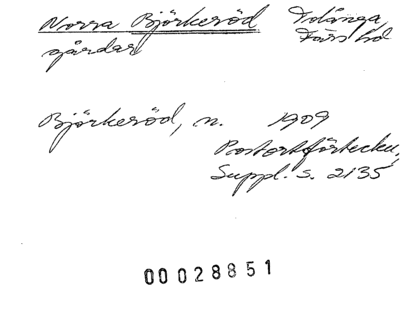 Norra Björkeröd Tolånga,
gårdar Färs hd
Björkeröd, n. 1909
Postortsförteckn,
Suppl. s. 2135
00028851